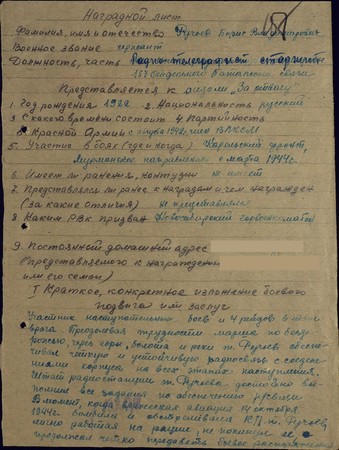 Наградной лист
Фамилия, имя и отчество Пучов Борис Владимирович
Военное звание сержант
Должность, часть Радио-телеграфист старший
157 отдельного батальона связи
Представляется к медали "За отвагу"
1. Год рождения 1922 2. Национальность русский
3. С какого времени состоит 4. Партийность
в Красной Армии с 1942, член ВЛКСМ
5. Участие в боях (где и когда) Карельский фронт,
Мурманское направление с марта 1944г.
6. Имеет ли ранения, контузии не имеет
7. Представлялся ли ранее к наградам и чем награжден
(за какие отличия) не представлялся
8. Каким РВК призван Новосибирский горвоенкоматом
9. Постоянный домашний адрес
(представляемого к награждению
или его семьи)
I Краткое, конкретное изложение боевого
подвига или заслуг
Участник наступательных боев и 4 рейдов в тыл
врага. Преодолевая трудности марша по бездо-
рожью, через горы, болота и реки т. обеспе-
чивал четкую и устойчивую радиосвязь с соедине-
ниями корпуса на всех этапах наступления.
Штат радиостанции т. достойно вы-
полнил все задания по обеспечению
В момент, когда вражеская авиация октября
1944г. бомбила и обстреливала КП, т.
лично работая на рации, не покинул её и
продолжал четко передавать боевые распоряжения